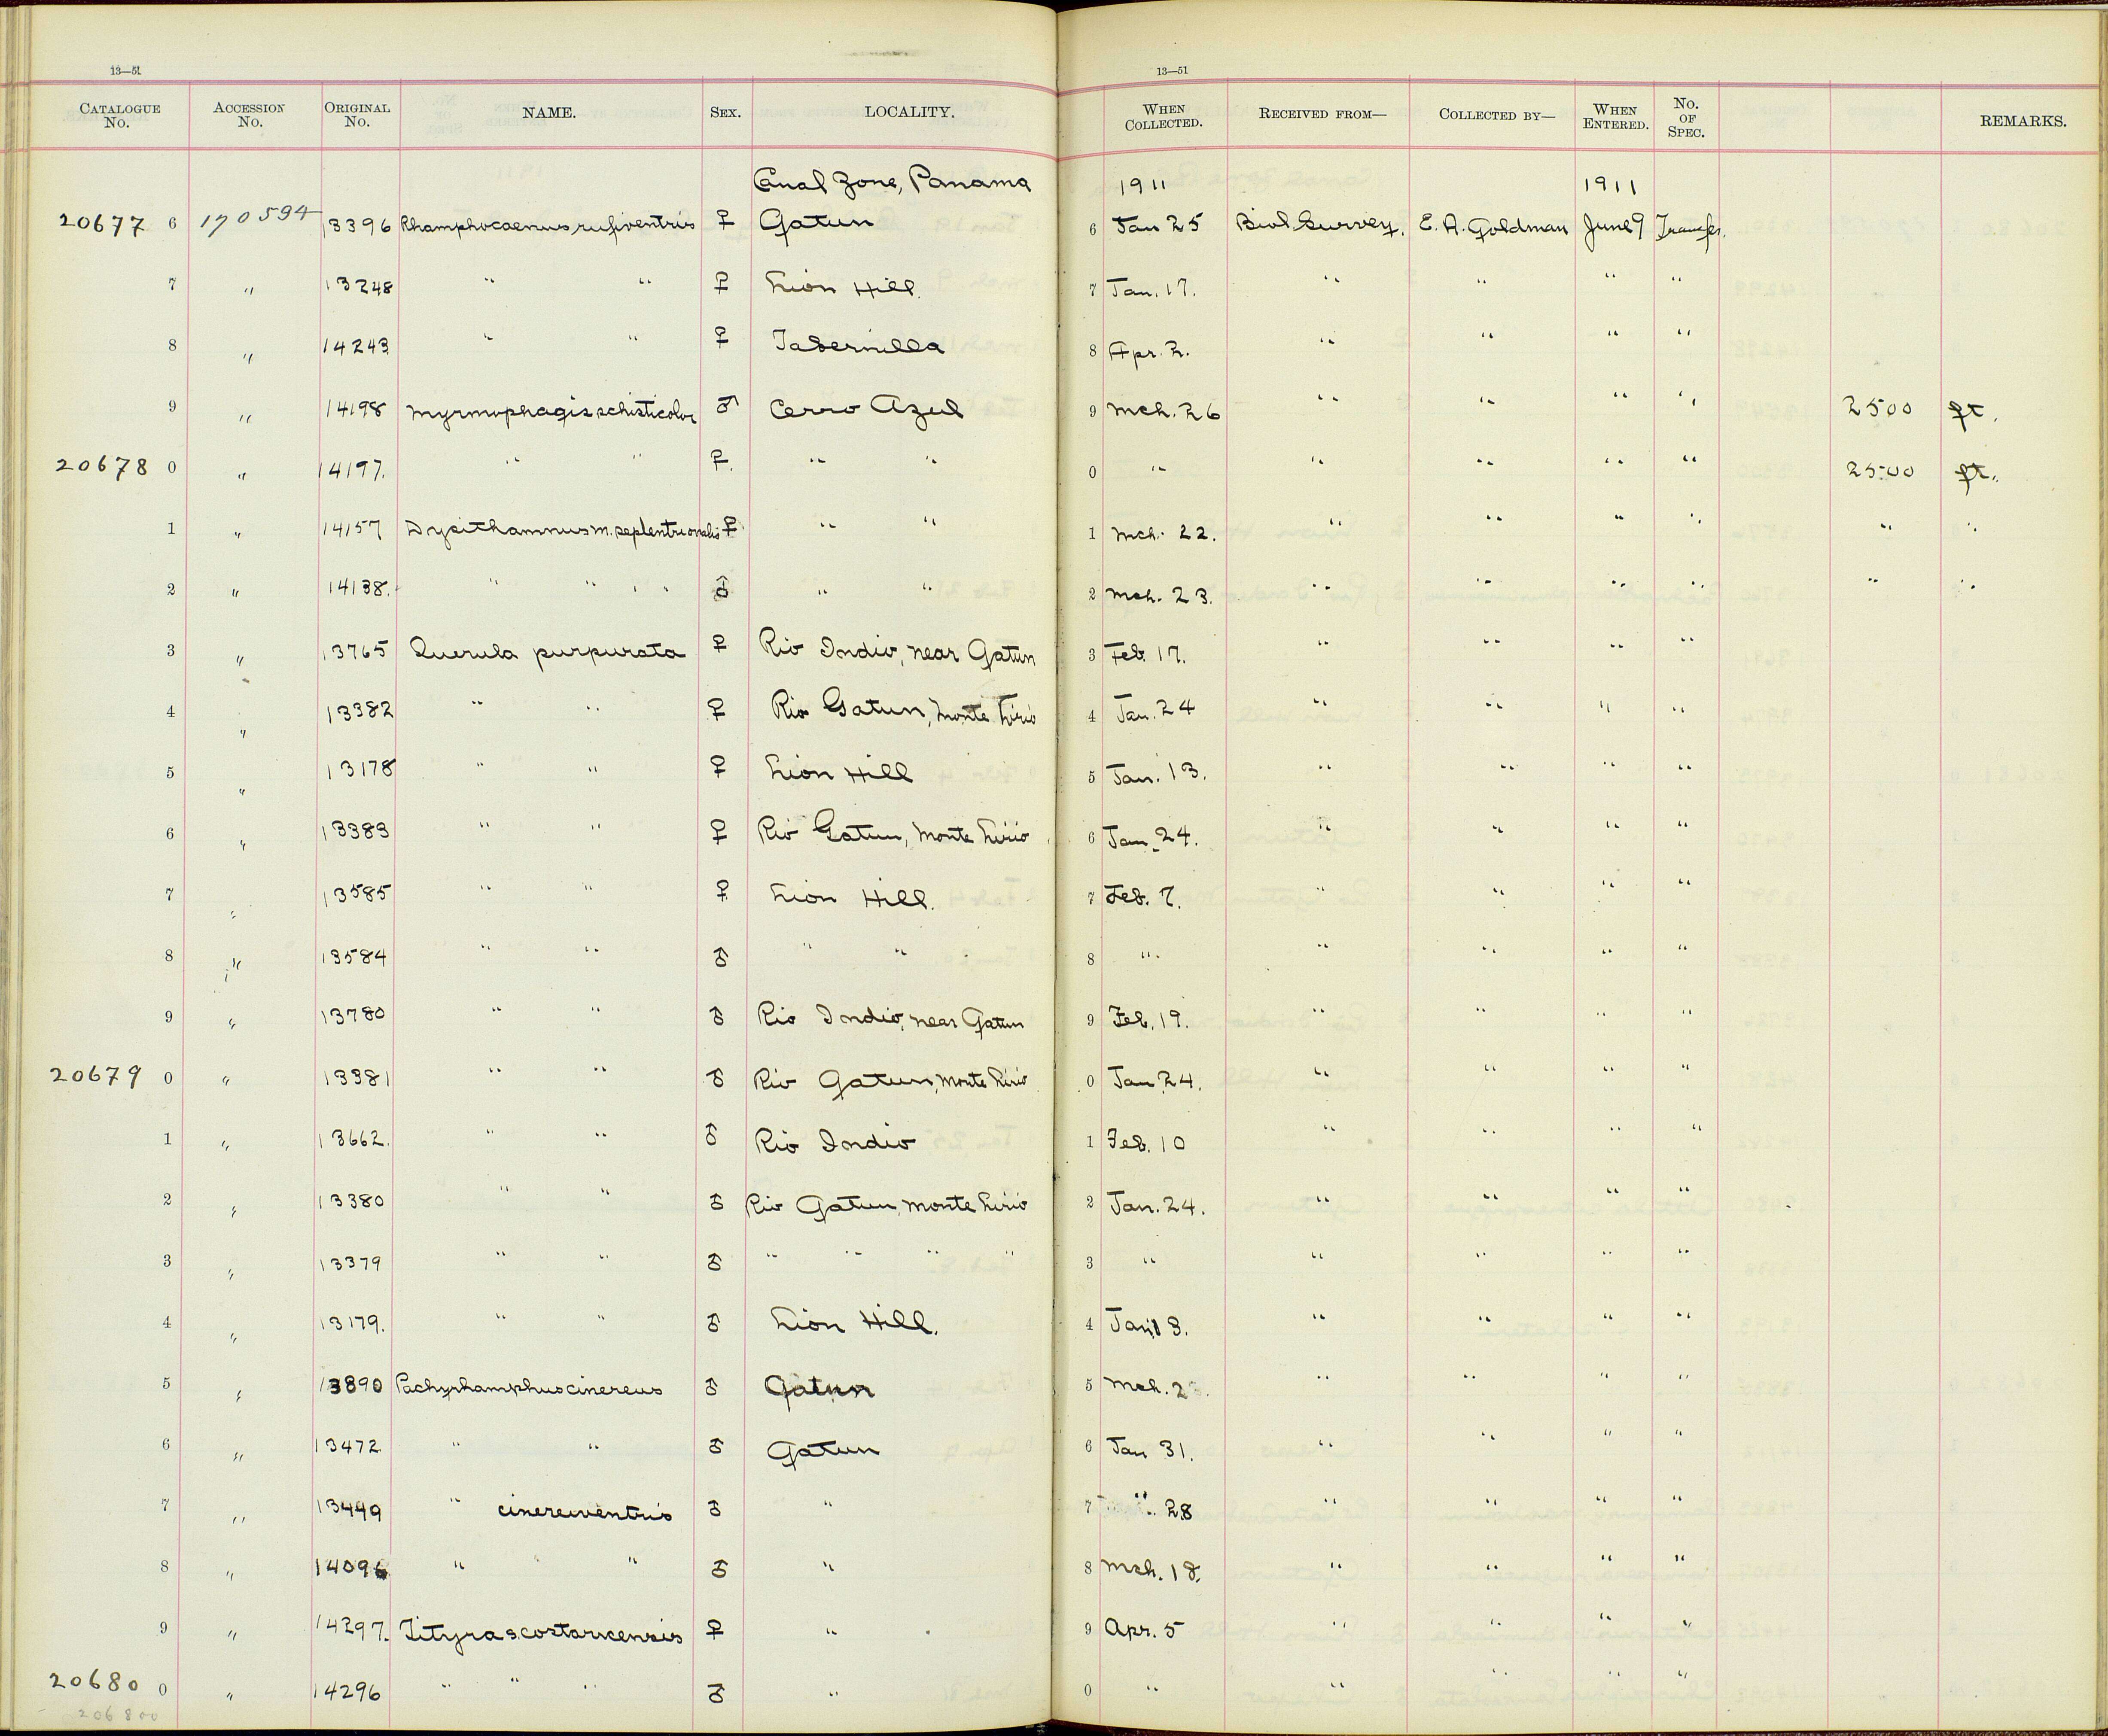 13—51 13—51
CATALOGUE No. ACCESSION No. ORIGINAL No. NAME. SEX. LOCALITY. WHEN COLLECTED. RECEIVED FROM— COLLECTED BY— WHEN ENTERED. No. OF SPEC. REMARKS.
Canal Zone, Panama 1911 1911
20677 6 170594 13396 Rhamphocaenus rufiventris ♀ Gatun 6 Jan 25 Biol Survey. E. A. Goldman June 9 Transfer.
7 " 13248 " " ♀ Lion Hill. 7 Jan. 17. " " " "
8 " 14243 " " ♀ Tabernilla 8 Apr. 2. " " " "
9 " 14198 Myrmophagis schisticolor ♂ Cerro Azul 9 Mch. 26 " " " " 2500 ft.
20678 0 " 14197. " " ♀. " " 0 " " " " " 2500 ft.
1 " 14157 Dysithamnus m. septentrionalis ♀ " " 1 Mch. 22. " " " " " "
2 " 14138. " " " " ♂ " " 2 Mch. 23. " " " " " "
3 " 13765 Querula purpurata ♀ Rio Indio, near Gatun 3 Feb. 17. " " " "
4 " 13382 " " ♀ Rio Gatun, Monte Lirio 4 Jan. 24 " " " "
5 " 13178 " " ♀ Lion Hill 5 Jan. 13. " " " "
6 " 13383 " " ♀ Rio Gatun, Monte Lirio 6 Jan. 24. " " " "
7 " 13585 " " ♀ Lion Hill. 7 Feb. 7. " " " "
8 " 13584 " " ♂ " " 8 " " " " "
9 " 13780 " " ♂ Rio Indio, near Gatun 9 Feb. 19. " " " "
20679 0 " 13381 " " ♂ Rio Gatun, Monte Lirio 0 Jan. 24. " " " "
1 " 13662. " " ♂ Rio Indio 1 Feb. 10 " " " "
2 " 13380 " " ♂ Rio Gatun, Monte Lirio 2 Jan. 24. " " " "
3 " 13379 " " ♂ " " " " 3 " " " " "
4 " 13179. " " ♂ Lion Hill. 4 Jan 13. " " " "
5 " 13890 Pachyrhamphus cinereus ♂ Gatun 5 Mch. " " " "
6 " 13472 " " ♂ Gatun 6 Jan 31. " " " "
7 " 13449 " cinereiventris ♂ " 7 " 28 " " " "
8 " 14096 " " " ♂ " 8 Mch. 18. " " " "
9 " 14297. Tityra s. costaricensis ♀ " 9 Apr. 5 " " " "
20680 0 " 14296 " " " ♂ " 0 " " " " "
206800